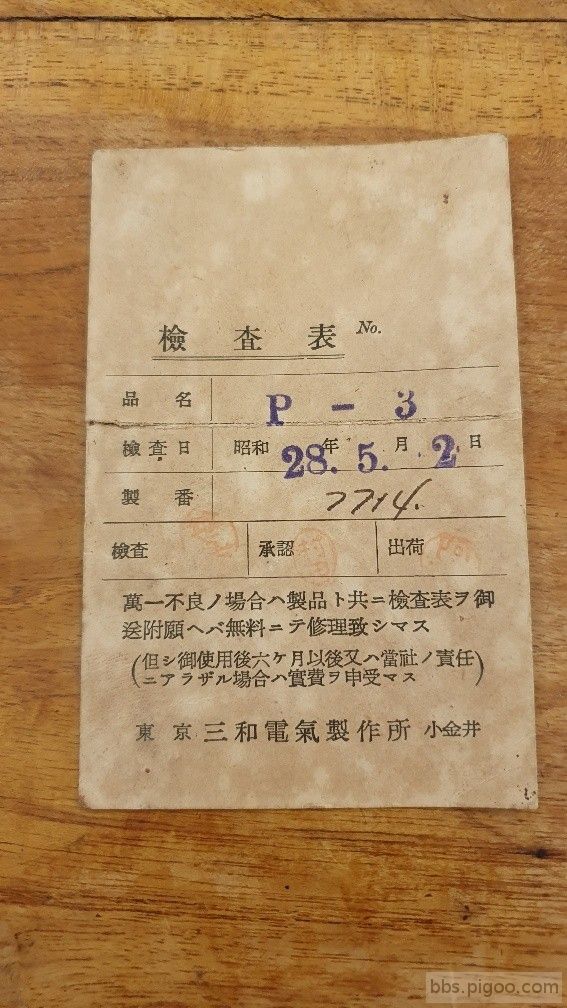 檢査表 No.
品名 P - 3
檢査日 昭和 28年 5.月 2日
製番 7714.
檢査 承認 出荷
萬一不良ノ場合ハ製品ト共ニ檢査表ヲ御
送附願ヘバ無料ニテ修理致シマス
(但シ御使用後六ケ月以後又ハ當社ノ責任
ニアラザル場合ハ實費ヲ申受マス)
東京 三和電氣製作所 小金井
bbs.pigoo.com